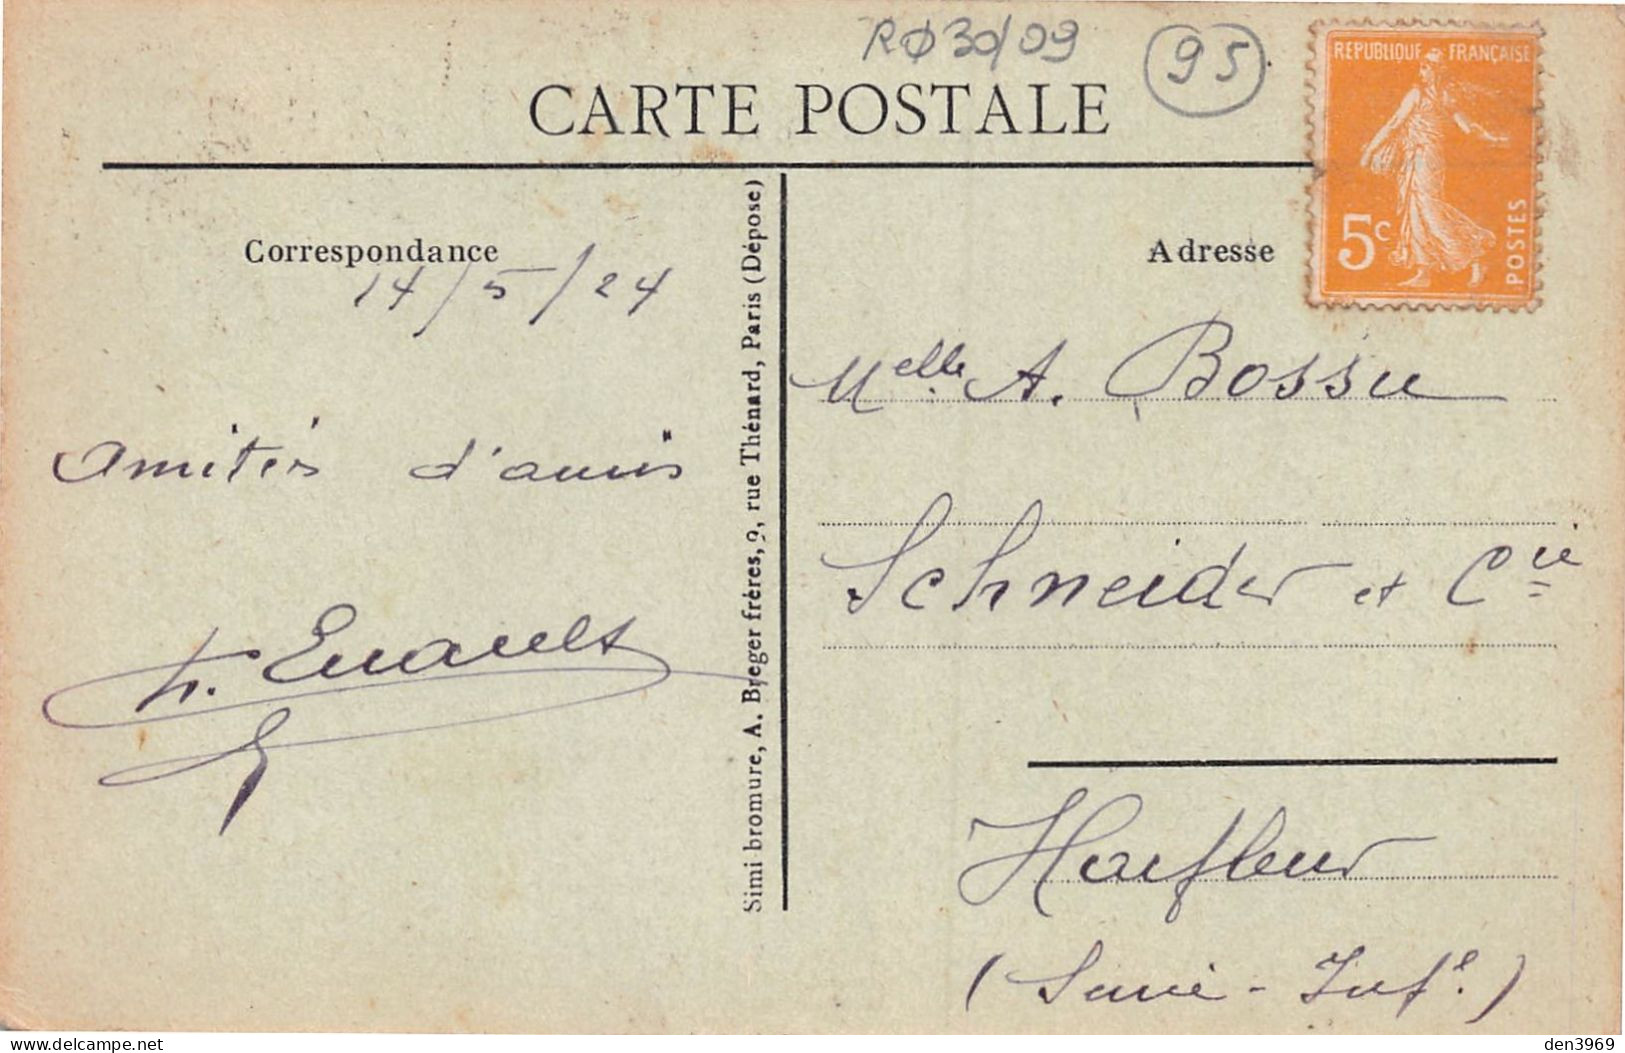 RØ30/09
95
CARTE POSTALE
REPUBLIQUE FRANÇAISE
5c
POSTES
Correspondance
14/5/24
Amitiés d'amis
Enault
Simi bromure, A. Breger frères, 9, rue Thénard, Paris (Déposé)
Adresse
Melle. A. Bossu
Schneider et Cie
Harfleur
(Seine-Infe.)
delcampe.net
den3969